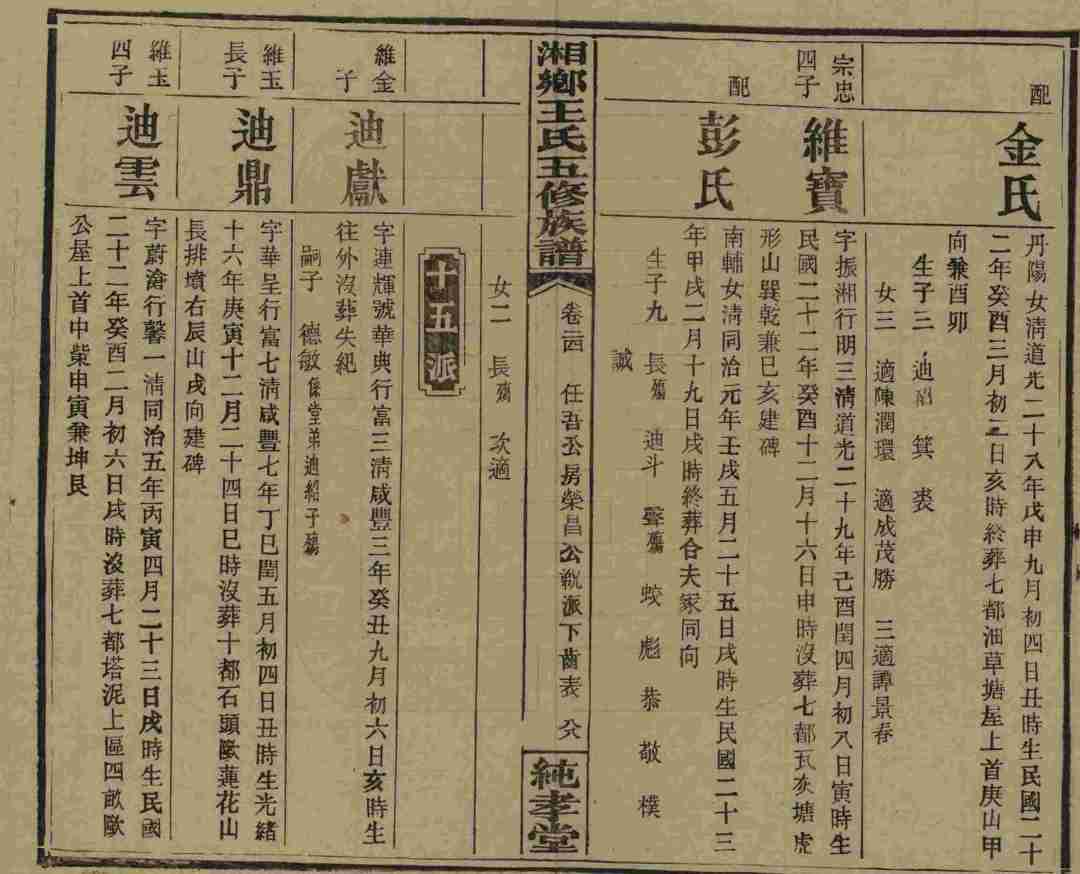 配
金氏
丹陽女淸道光二十八年戊申九月初四日丑時生民國二十
二年癸酉三月初二日亥時終葬七都油草塘屋上首庚山甲
向兼酉卯
生子三 迪紹 箕 裘
女三 適陳潤環 適成茂勝 三適譚景春
宗忠
四子
維寶
字振湘行明三淸道光二十九年己酉閏四月初八日寅時生
民國二十二年癸酉十二月十六日申時沒葬七都瓦灰塘虎
形山巽乾兼巳亥建碑
配
彭氏
南輔女淸同治元年壬戌五月二十五日戌時生民國二十三
年甲戌二月十九日戌時終葬合夫冢同向
生子九 長殤 迪斗 馨殤 蛟 彪 恭 敬 樸
誠
湘鄉王氏五修族譜
卷二十四 任吾公房榮昌公䡄派下齒表 六八
純孝堂
女二 長殤 次適
十五派
維金
子
迪獻
字連輝號華典行富三淸咸豐三年癸丑九月初六日亥時生
往外沒葬失紀
嗣子 德敏係堂弟迪紹子殤
維玉
長子
迪鼎
字華呈行富七淸咸豐七年丁巳閏五月初四日丑時生光緒
十六年庚寅十二月二十四日巳時沒葬十都石頭歐蓮花山
長排墳右辰山戌向建碑
維玉
四子
迪雲
字蔚滄行馨一淸同治五年丙寅四月二十三日戌時生民國
二十二年癸酉二月初六日戌時沒葬七都塔泥上區四畝歐
公屋上首中㘹申寅兼坤艮